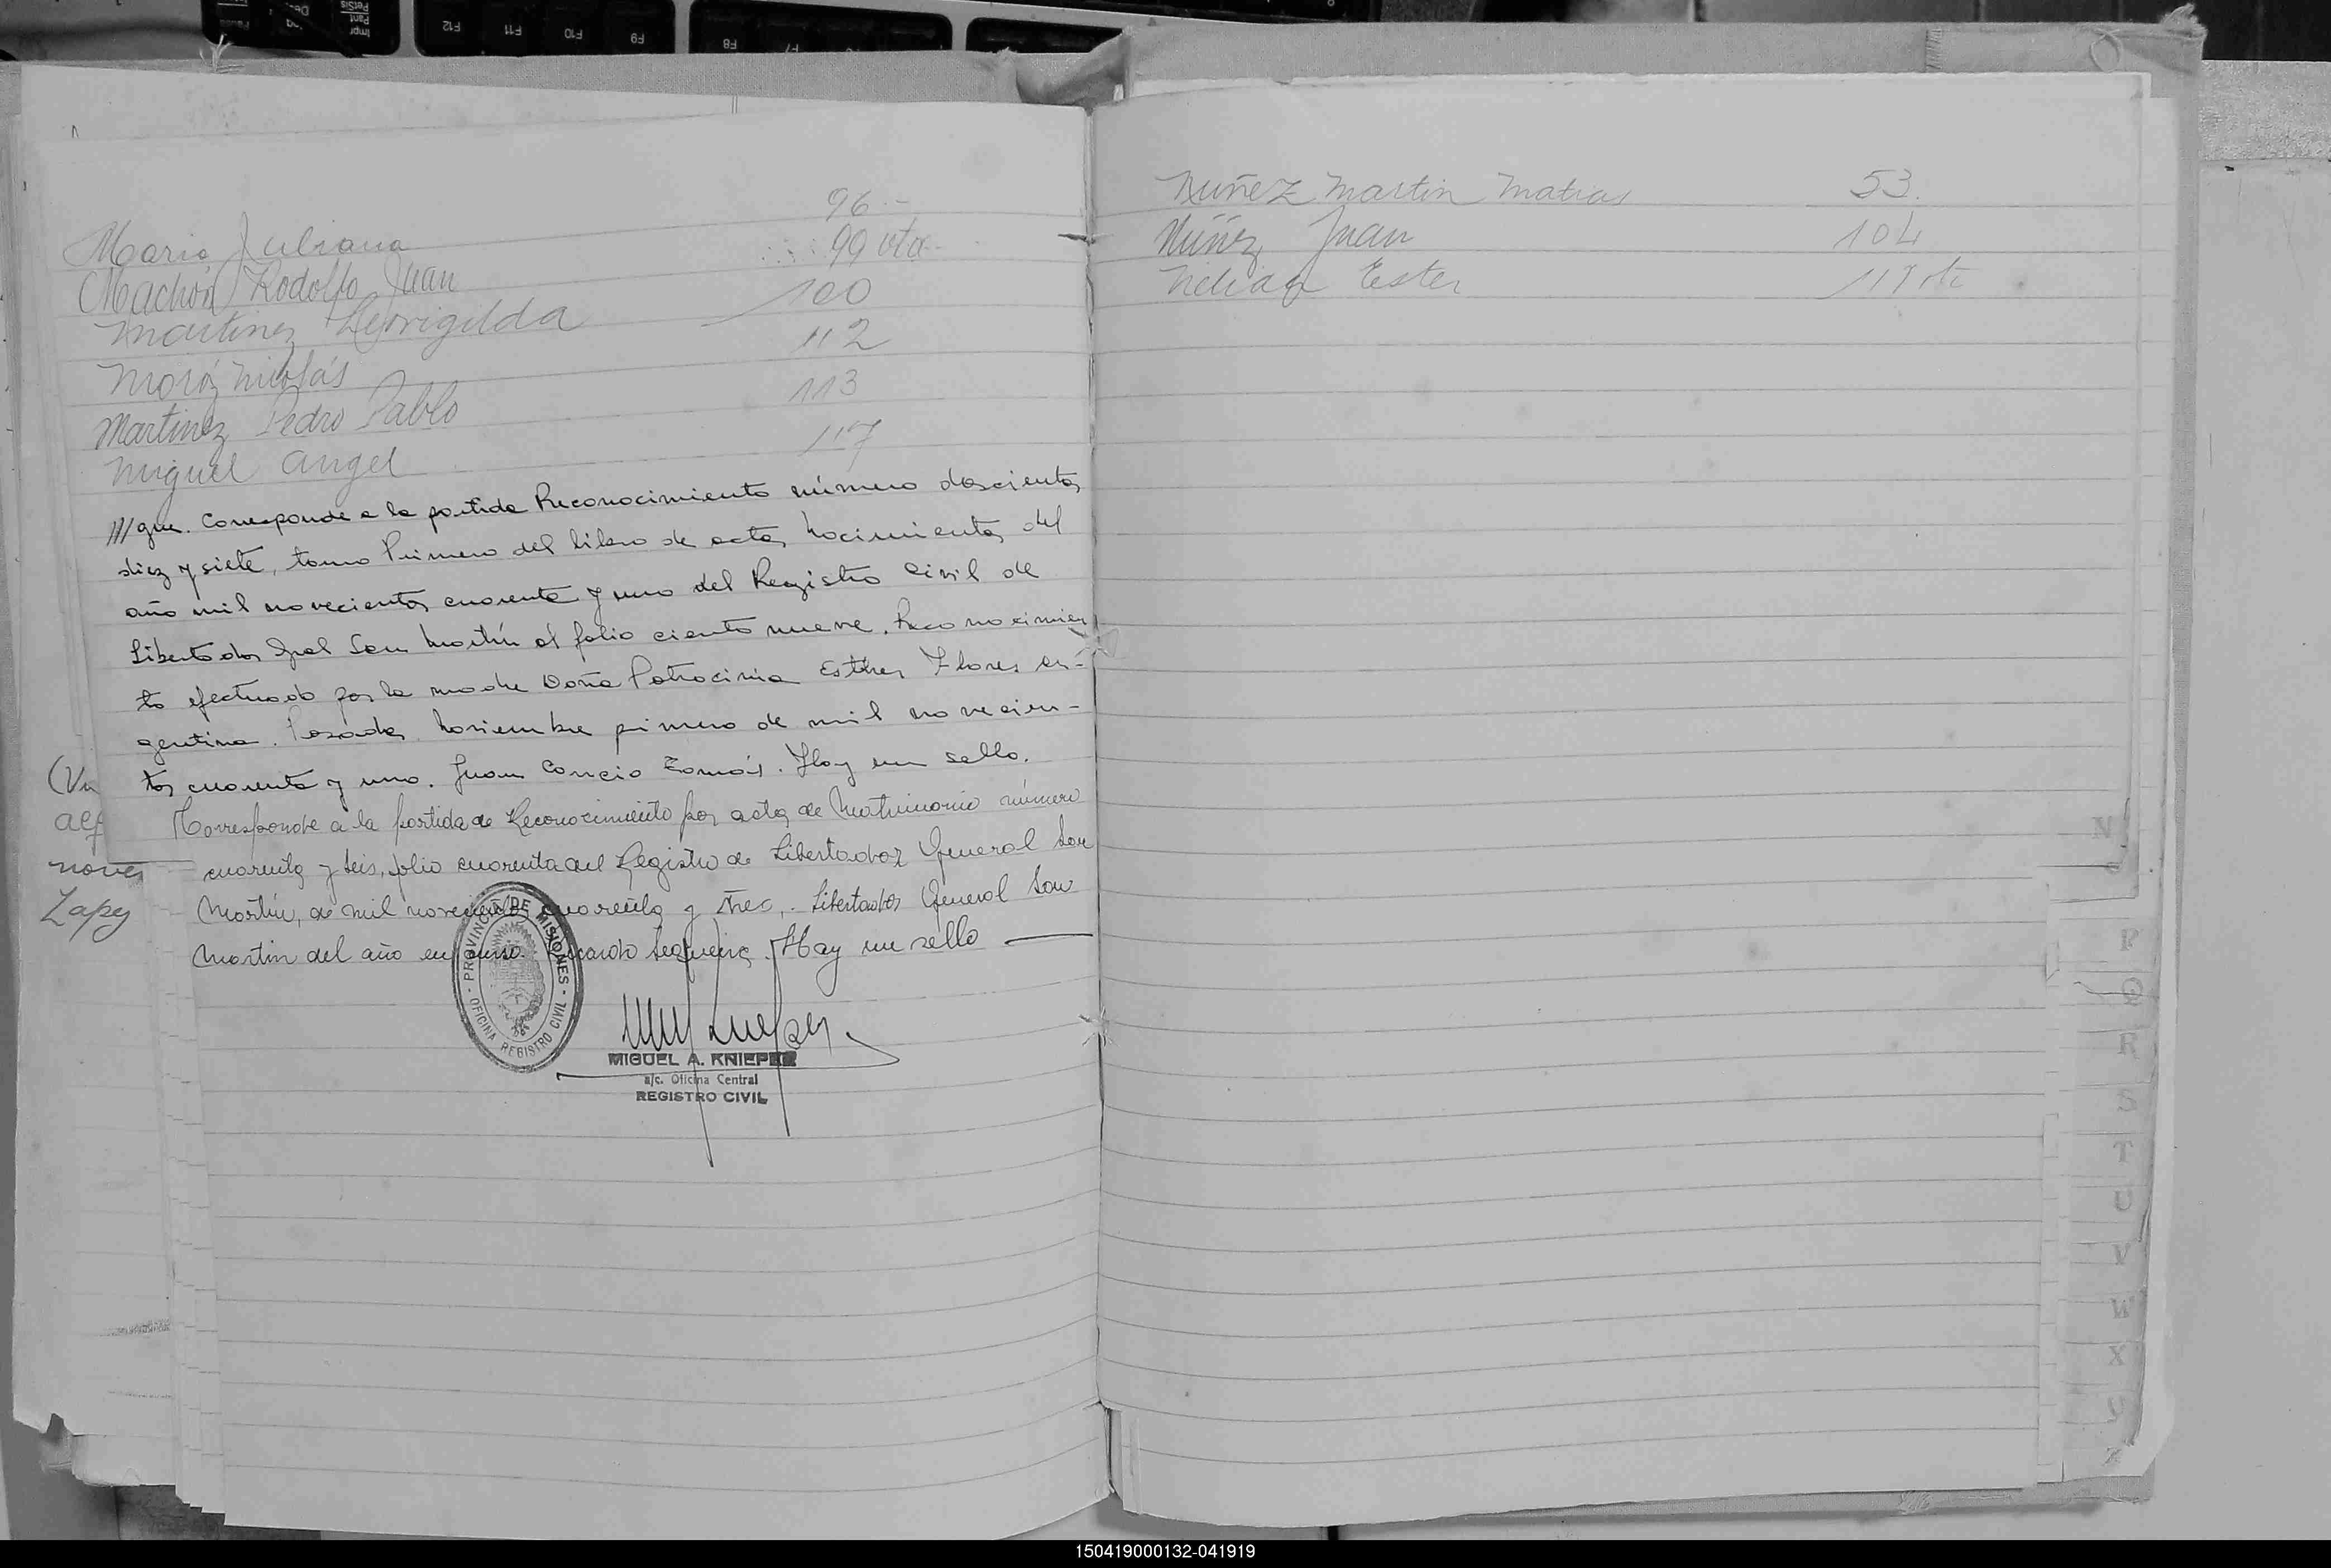 96.-
Maria Juliana 99 vta.
Machón Rodolfo Juan 100
Martinez Leovigilda 112
Moróz Nicolás 113
Martinez Pedro Pablo 117
Miguel Angel
///que. Corresponde a la partida Reconocimiento número doscientos
diez y siete, tomo Primero del libro de actas nacimientos del
año mil novecientos cuarenta y uno del Registro Civil de
Libertador Gral San Martín al folio ciento nueve. Reconocimien
to efectuado por la madre Doña Patrocinia Esther Flores ar-
gentina. Posadas noviembre primero de mil novecien-
tos cuarenta y uno. Juan Tomás. Hay un sello.
Corresponde a la partida de Reconocimiento por acta de Matrimonio número
cuarenta y seis, folio cuarenta del Registro de Libertador General San
Martín, de mil novecientos cuarenta y tres,. Libertador General San
Martin del año en curso. Ricardo Sequeira. Hay un sello
(Vu
aef
noves
Zapey
PROVINCIA DE MISIONES
OFICINA REGISTRO CIVIL
MIGUEL A. KNIEPER
a/c. Oficina Central
REGISTRO CIVIL
Nuñez Martin Matias 53.
Núñez Juan 104
Nelida Ester
N
P
Q
R
S
T
U
V
W
X
Y
Z
F12
F11
F10
F9
F8
F7
Impr
Pant
PetSis
150419000132-041919